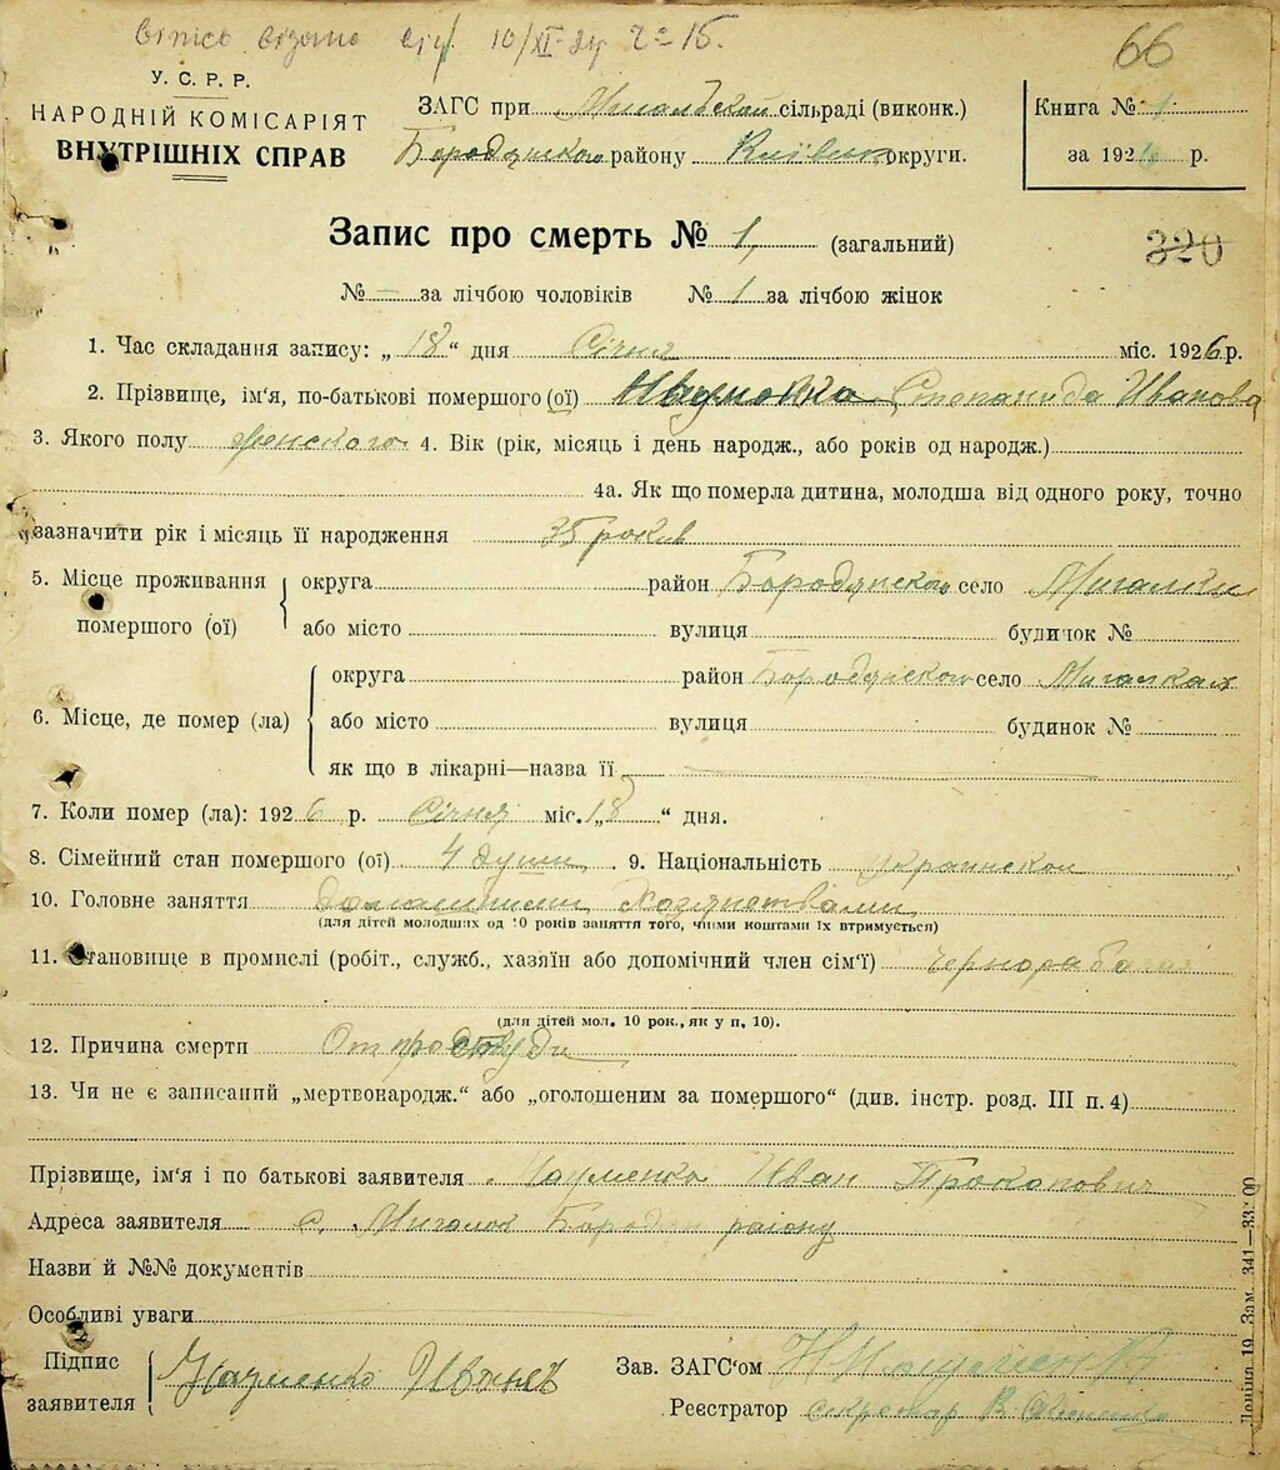 10/XI
66
У. С. Р. Р.
НАРОДНІЙ КОМІСАРІЯТ
ВНУТРІШНІХ СПРАВ
ЗАГС при сільраді (виконк.)
Бородянського району Київськ округи.
Книга № 1
за 1926 р.
Запис про смерть № 1 (загальний)
320
№ — за лічбою чоловіків № 1 за лічбою жінок
1. Час складання запису: „ 18 “ дня Січня міс. 1926 р.
2. Прізвище, ім‘я, по-батькові помершого (ої) Науменко Степанида Иванова
3. Якого полу женского 4. Вік (рік, місяць і день народж., або років од народж.)
4а. Як що померла дитина, молодша від одного року, точно
зазначити рік і місяць її народження 35 рокив
5. Місце проживання помершого (ої)
округа район Бородянском село Мигалки
або місто вулиця будинок №
6. Місце, де помер (ла)
округа район Бородянском село Мигалках
або місто вулиця будинок №
як що в лікарні—назва її
7. Коли помер (ла): 1926 р. Січня міс. „18“ дня.
8. Сімейний стан помершого (ої) 4 души 9. Національність украинской
10. Головне заняття Хозяиствами
(для дітей молодших од 10 років заняття того, чиїми коштами їх втримується)
11. Становище в промислі (робіт., служб., хазяїн або допомічний член сім‘ї) чернорабочая
(для дітей мол. 10 рок., як у п. 10).
12. Причина смерти От простуди
13. Чи не є записаний „мертвонародж.“ або „оголошеним за помершого“ (див. інстр. розд. III п. 4)
Прізвище, ім‘я і по батькові заявителя Науменко Иван Прокопович
Адреса заявителя с. Мигалок Бородян району
Назви й №№ документів
Особливі уваги
Підпис заявителя Науменко Иван
Зав. ЗАГС‘ом
Реєстратор секретар
Зам. 341—33.000